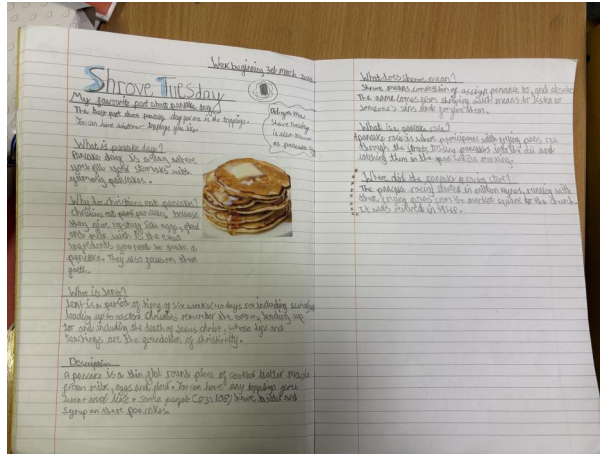 Week beginning 3rd march
Shrove Tuesday
My favourite part about pancake day
The best part about pancake day for me is the toppings.
You can have whatever toppings you like.
Did you know
Shrove Tuesday
is also known
as pancake
What is pancake day?
Pancake day is a day where
you fill your stomach with
yummy pancakes.
Why do christians eat pancakes?
Christians eat pancakes because
they give up stuff like eggs, flour
and milk wich is the exact
ingredients you need to make a
pancake. They also focus on their
faith.
What is Lent?
Lent is a period of time of six weeks (40 days not including sunday)
leading up to easter. Christians remember the events leading up
to and including the death of Jesus Christ, whose life and
teachings are the foundation of christianity.
Description
A pancake is a thin, flat round piece of cooked batter made
from milk, eggs and flour. You can have any toppings you
want and like. some people have butter and
syrup on there pancakes.
What does shrove mean?
Shrove means confession of assign penance to, and absolve
The name comes from shriving wich means to listen to
someone's sins and forgive them.
What is a pancake race?
A pancake race is when participants with frying pans run
through the streets tossing pancakes into the air and
catching them in the pan while running.
Where did the pancake racing start?
The pancake racing started in running with
their frying pans from the market square to the church.
It was revived in 1948.